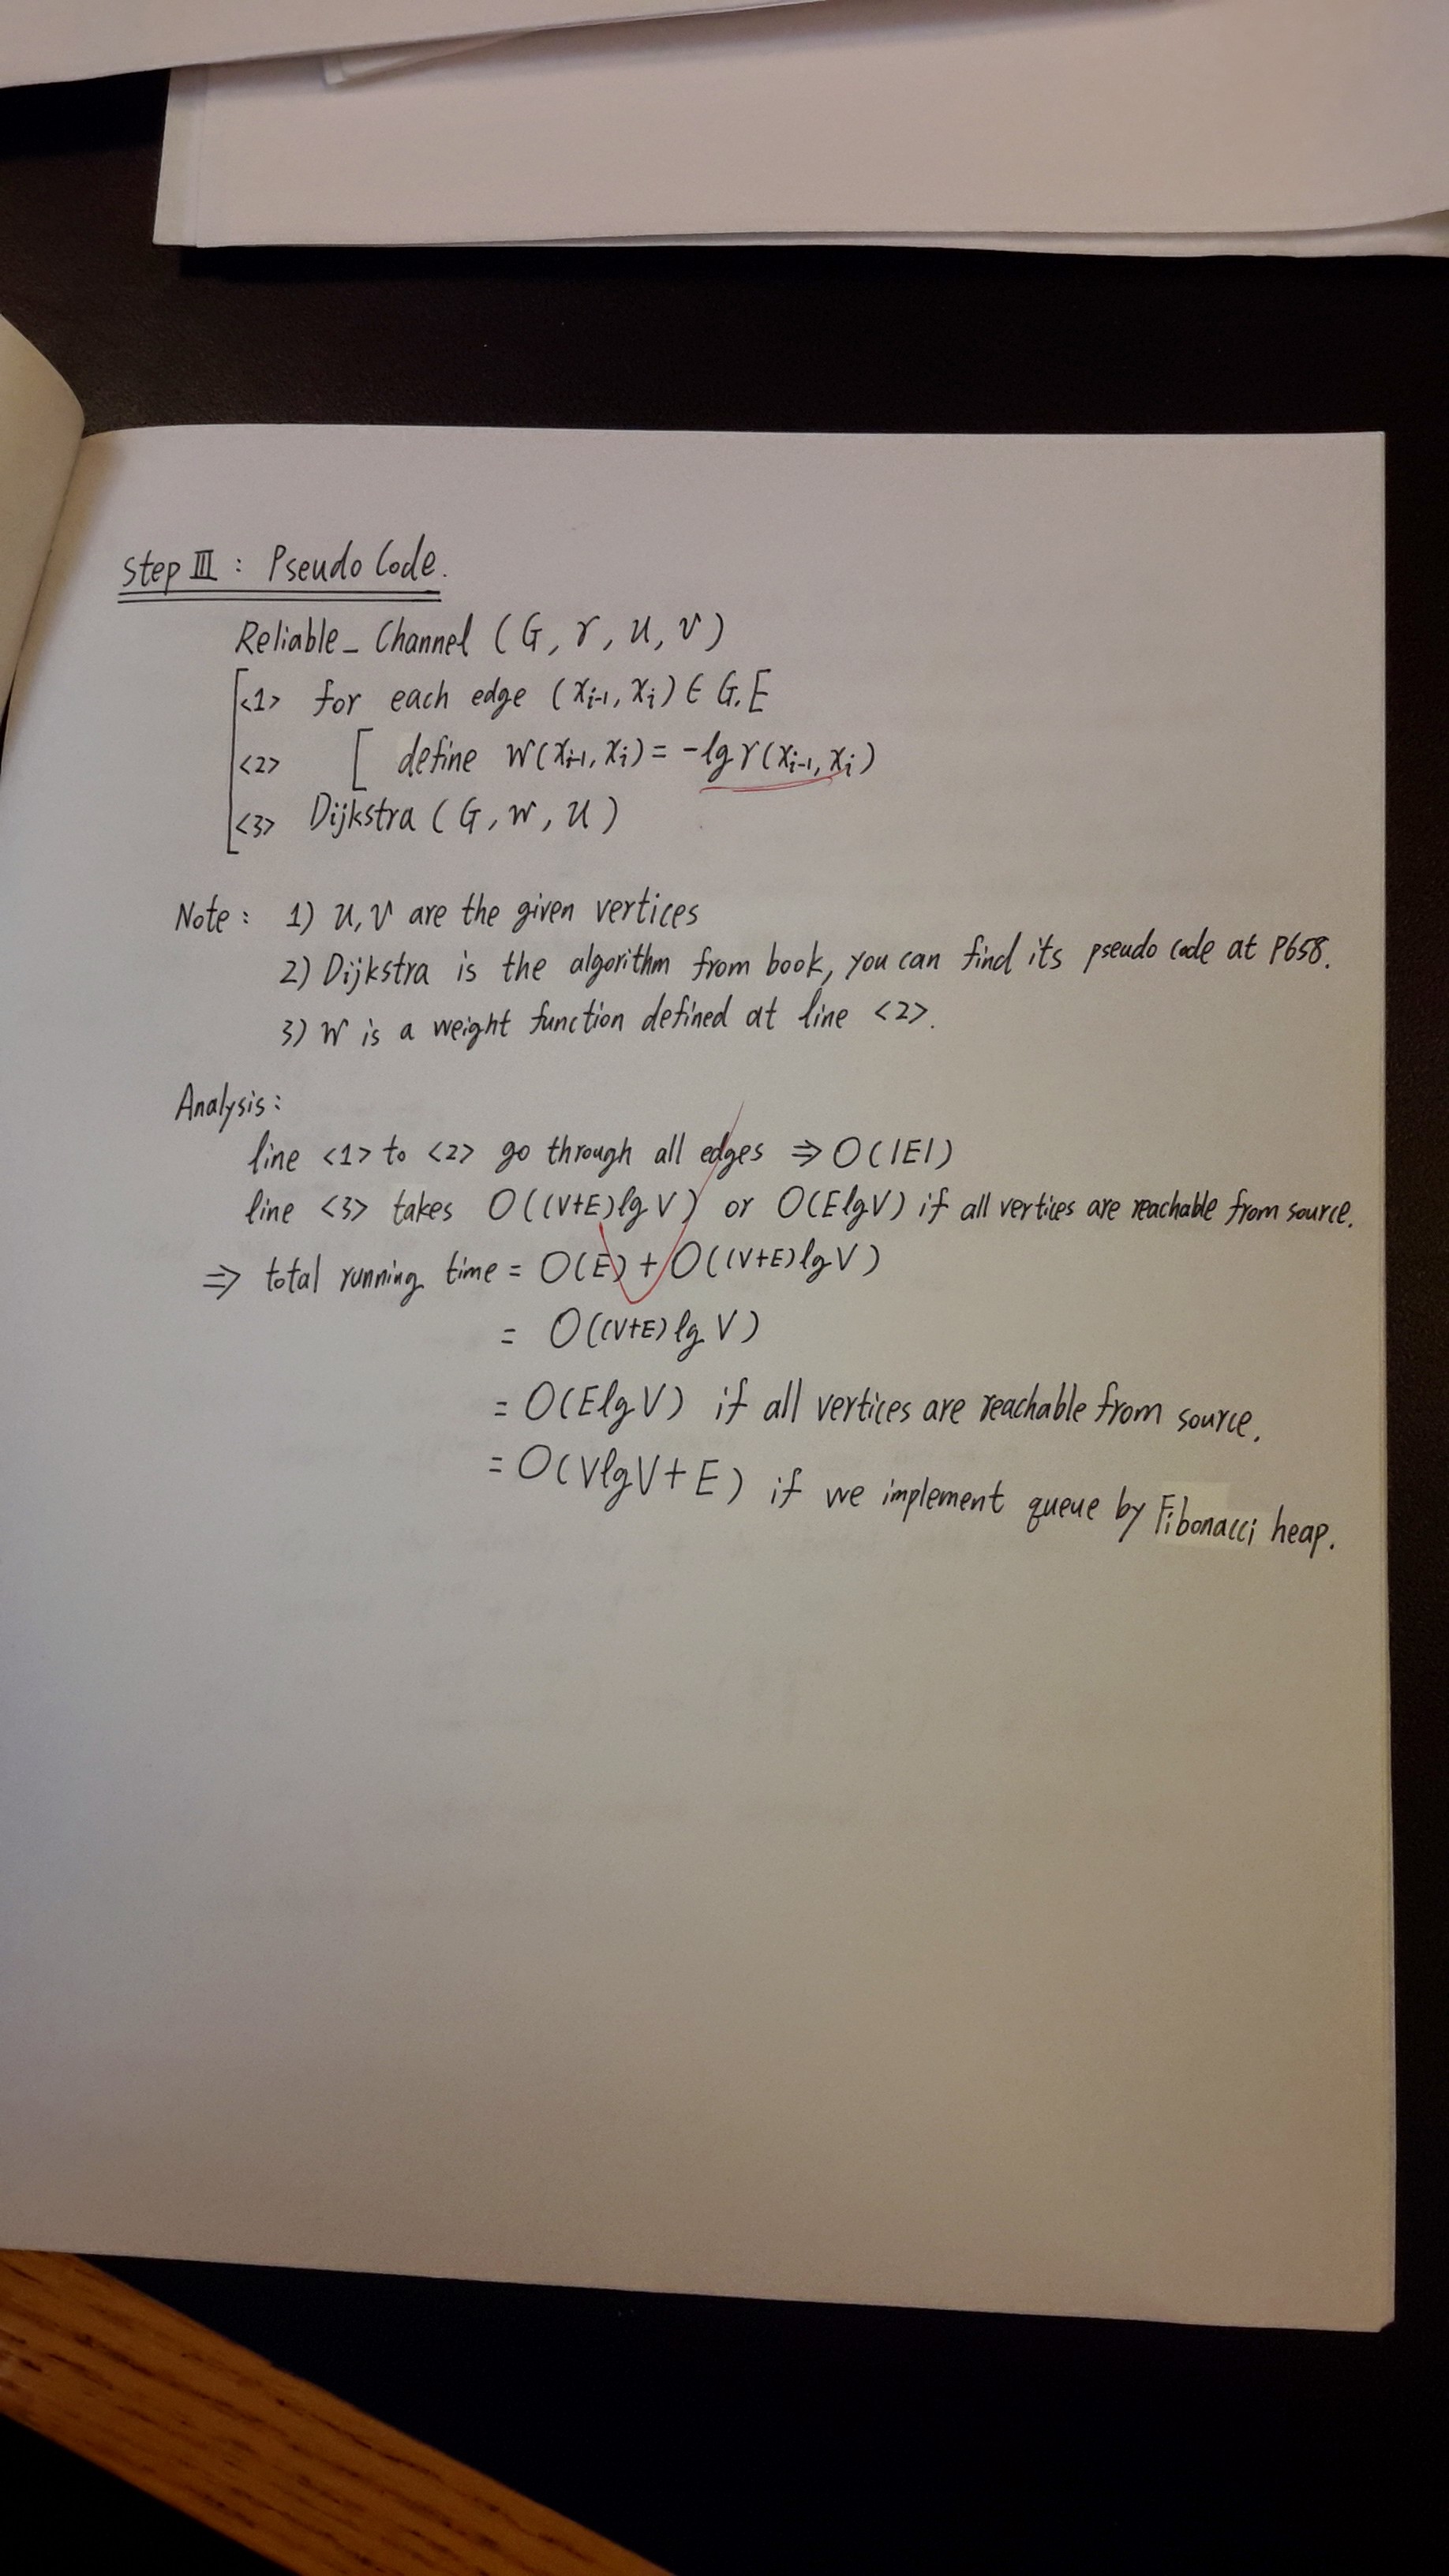 Step III : Pseudo Code.
Reliable_Channel (G, r, u, v)
<1> for each edge (x_{i-1}, x_i) ∈ G.E
<2> [ define w(x_{i-1}, x_i) = -lg r(x_{i-1}, x_i)
<3> Dijkstra (G, w, u)
Note : 1) u, v are the given vertices
2) Dijkstra is the algorithm from book, you can find its pseudo code at P658.
3) w is a weight function defined at line <2>.
Analysis :
line <1> to <2> go through all edges ⇒ O(|E|)
line <3> takes O((V+E)lg V) or O(E lg V) if all vertices are reachable from source.
⇒ total running time = O(E) + O((V+E) lg V)
= O((V+E) lg V)
= O(E lg V) if all vertices are reachable from source.
= O(V lg V + E) if we implement queue by Fibonacci heap.